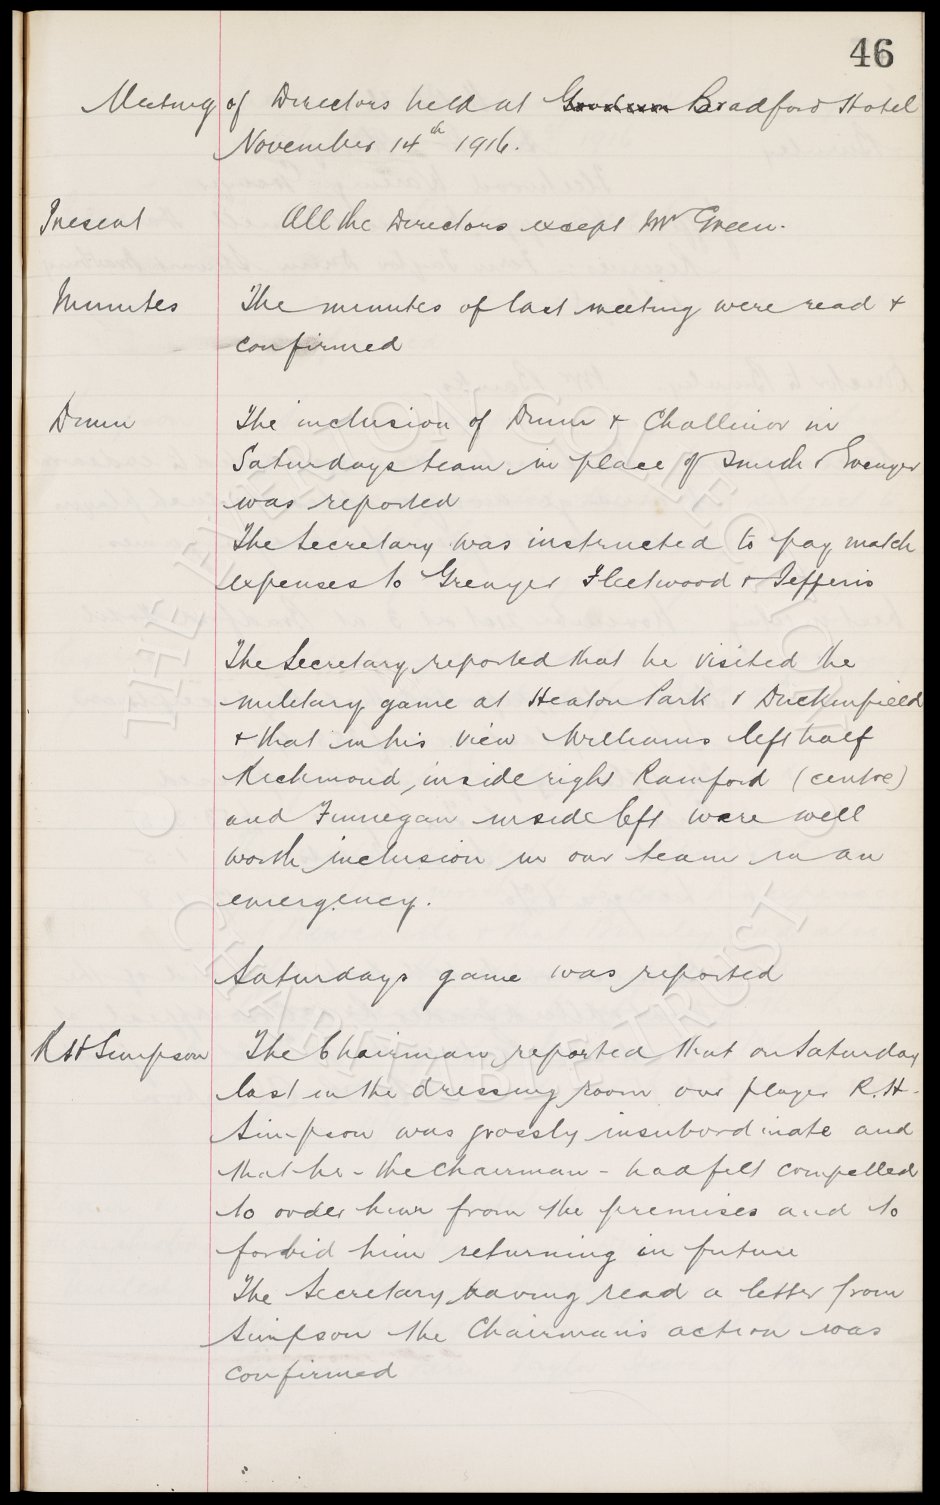 46
Meeting of Directors held at Bradford Hotel
November 14th 1916.
Present All the Directors except Mr Green.
Minutes The minutes of last meeting were read +
confirmed
Dunn The inclusion of Dunn + Challinor in
Saturdays team in place of Smith & Grenyer
was reported
The Secretary was instructed to pay match
expenses to Grenyer Fleetwood & Jefferis
The Secretary reported that he visited the
military game at Heaton Park & Duckinfield
+ that in his view Williams left half
Richmond, inside right Ramford (centre)
and Finnegan inside left were well
worth inclusion in our team in an
emergency.
Saturdays game was reported
R H Simpson The Chairman reported that on Saturday
last in the dressing room our player R.H.
Simpson was grossly insubordinate and
that he - the Chairman - had felt compelled
to order him from the premises and to
forbid him returning in future
The Secretary having read a letter from
Simpson the Chairman's action was
confirmed
THE EVERTON COLLECTION
CHARITABLE TRUST